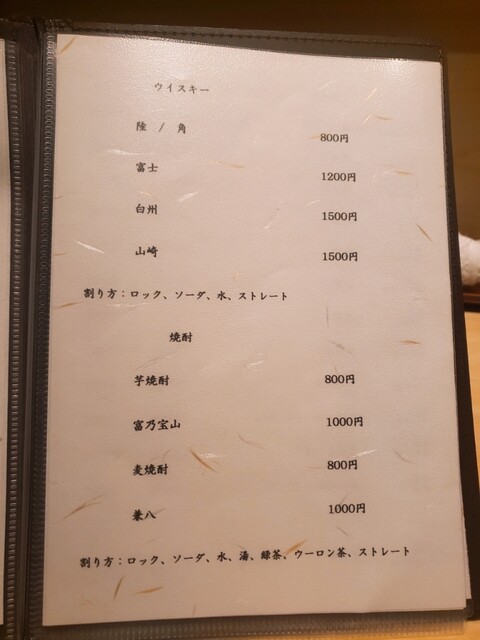 ウイスキー
陸 / 角 800円
富士 1200円
白州 1500円
山崎 1500円
割り方：ロック、ソーダ、水、ストレート
焼酎
芋焼酎 800円
富乃宝山 1000円
麦焼酎 800円
兼八 1000円
割り方：ロック、ソーダ、水、湯、緑茶、ウーロン茶、ストレート